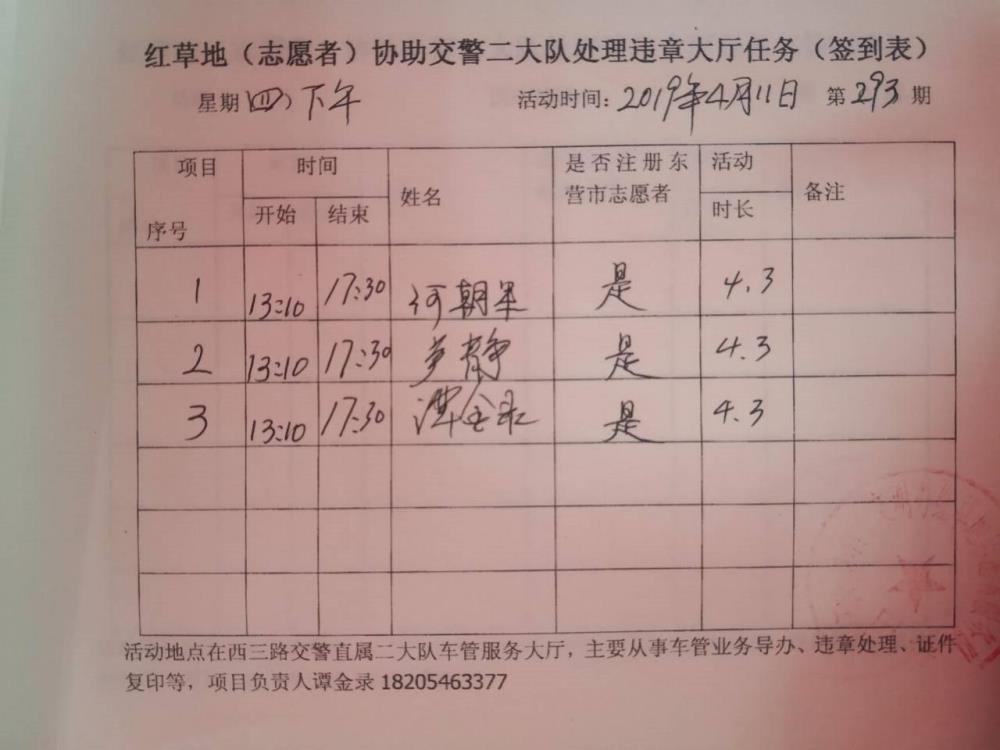 红草地（志愿者）协助交警二大队处理违章大厅任务（签到表）
星期(四)下午 活动时间：2019年4月11日 第293期
项目 时间 姓名 是否注册东营市志愿者 活动时长 备注
序号 开始 结束
1 13:10 17:30 何朝军 是 4.3
2 13:10 17:30 静 是 4.3
3 13:10 17:30 谭金录 是 4.3
活动地点在西三路交警直属二大队车管服务大厅，主要从事车管业务导办、违章处理、证件
复印等，项目负责人谭金录 18205463377